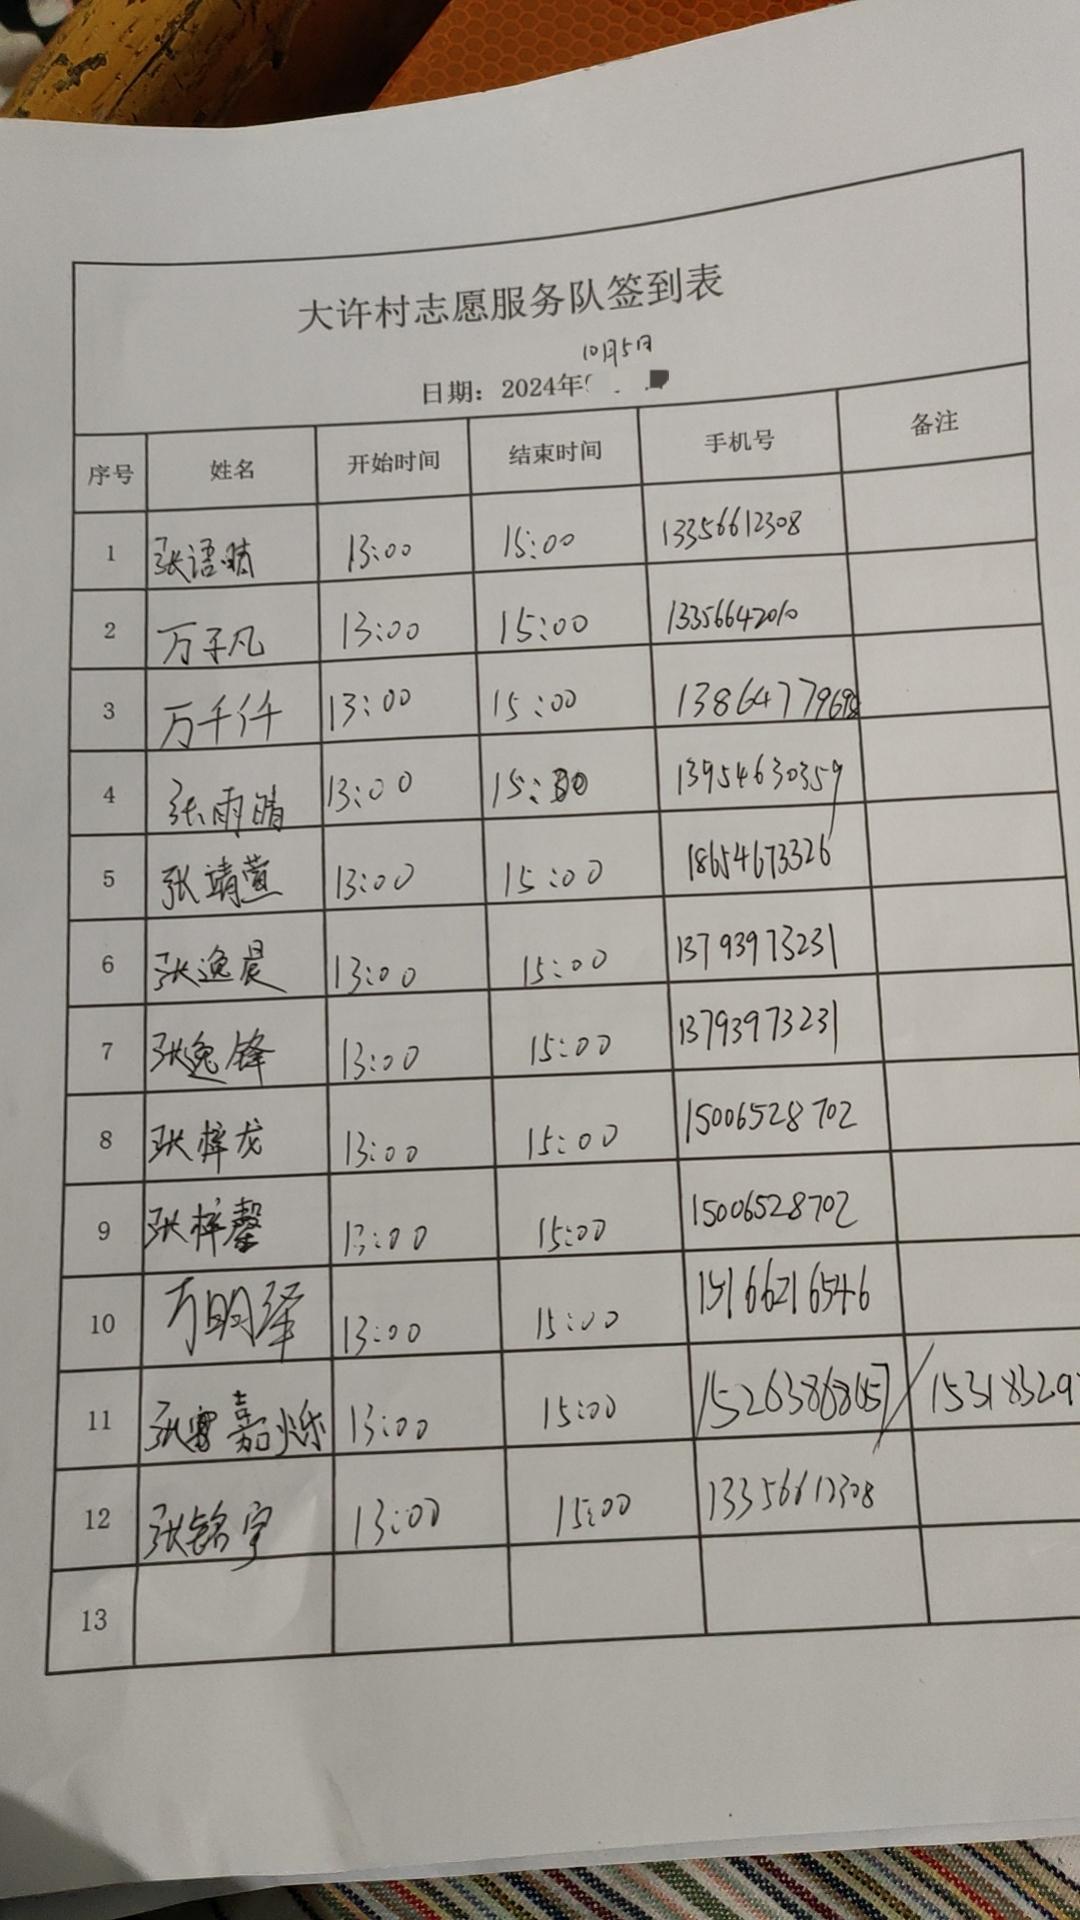 大许村志愿服务队签到表
10月5日
日期：2024年
序号 姓名 开始时间 结束时间 手机号 备注
1 张语晴 13:00 15:00 13356612308
2 万子凡 13:00 15:00 13356642010
3 万千仟 13:00 15:00 13864779698
4 张雨晴 13:00 15:00 13954630359
5 张靖萱 13:00 15:00 18654673326
6 张逸晨 13:00 15:00 13793973231
7 张逸锋 13:00 15:00 13793973231
8 张梓龙 13:00 15:00 15006528702
9 张梓馨 13:00 15:00 15006528702
10 万明泽 13:00 15:00
11 嘉烁 13:00 15:00
12 张铭宇 13:00 15:00 13356612308
13